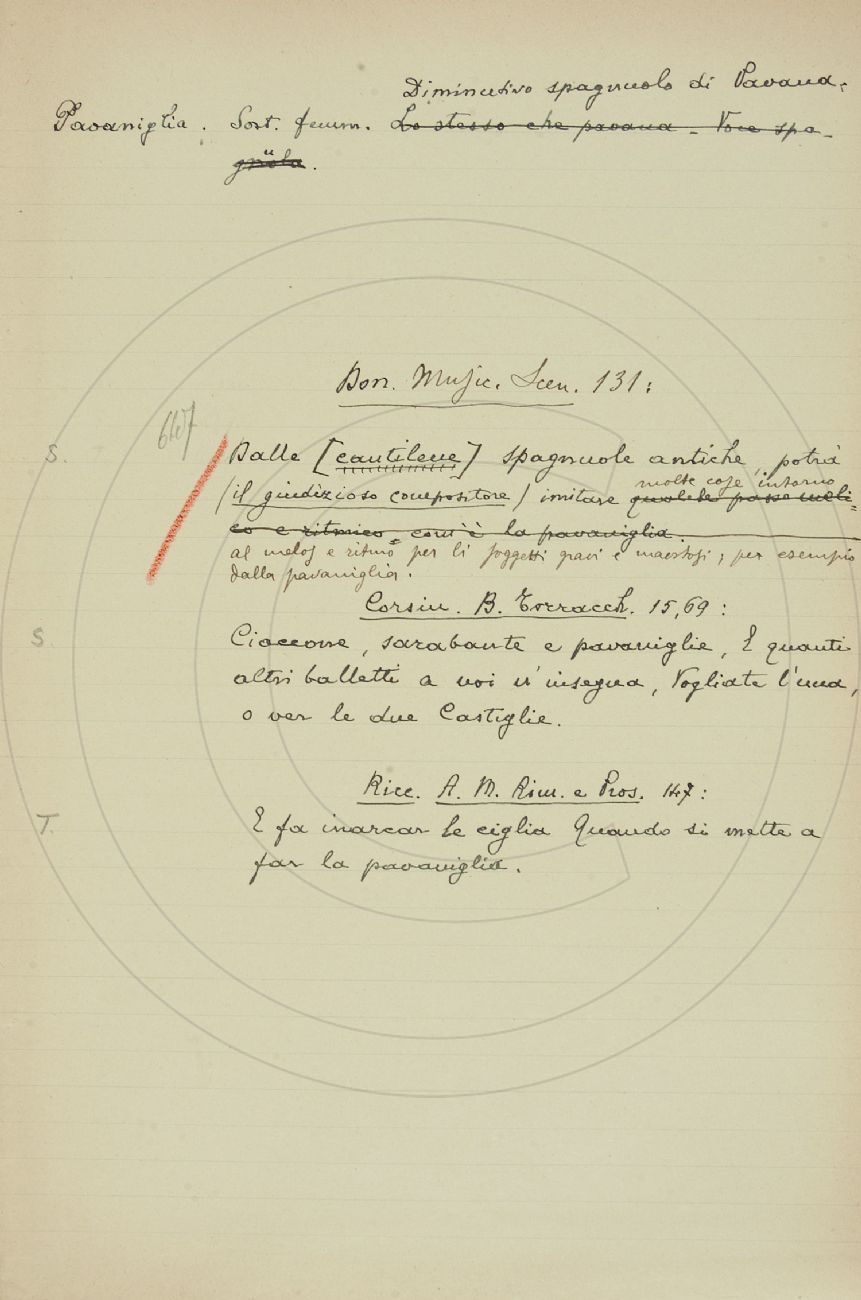 Diminutivo spagnuolo di Pavana.
Pavaniglia. Sost. femm. Lo stesso che pavana - Voce spa-
gnüola.
Bon. Music. Scen. 131:
647
S. Dalle [cantilene] spagnuole antiche, potrà
molte cose intorno
(il giudizioso compositore) imitare qualche passo meli-
co e ritmico com'è la pavaniglia.
al melos e ritmo per li soggetti gravi e maestosi; per esempio
dalla pavaniglia.
Corsin. B. Torracch. 15,69:
S. Ciaccone, sarabante e pavaniglie, E quanti
altri balletti a noi n'insegna, Vogliate l'una,
o ver le due Castiglie.
Ricc. A. M. Rim. e Pros. 147:
T. E fa inarcar le ciglia Quando si mette a
far la pavaniglia.